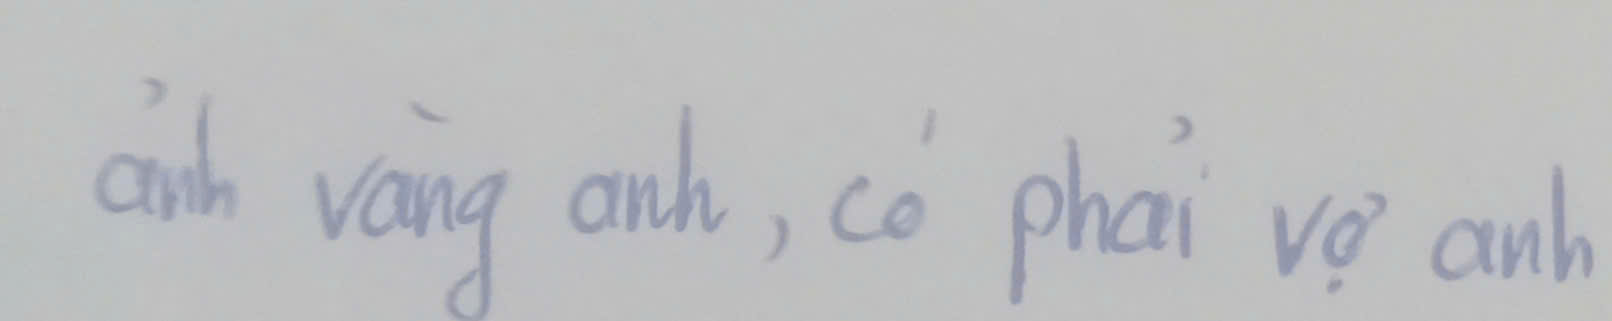 ảnh vàng anh, có phải vợ anh